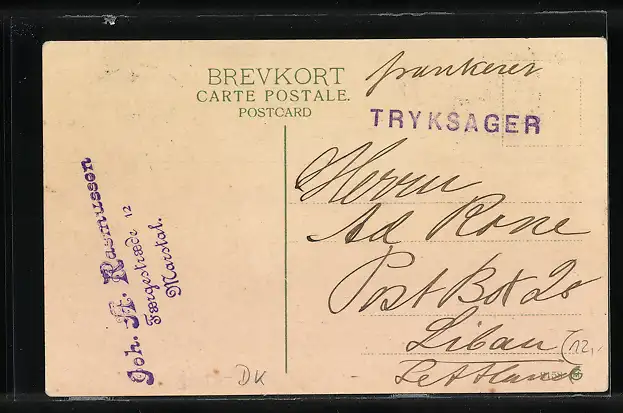 BREVKORT
CARTE POSTALE.
POSTCARD
frankerer
TRYKSAGER
Joh. A. Rasmussen
Færgestræde 12
Marstal.
Herrn
Ad Rone
Post Box 20
Libau
Lettland
12,-
-DK